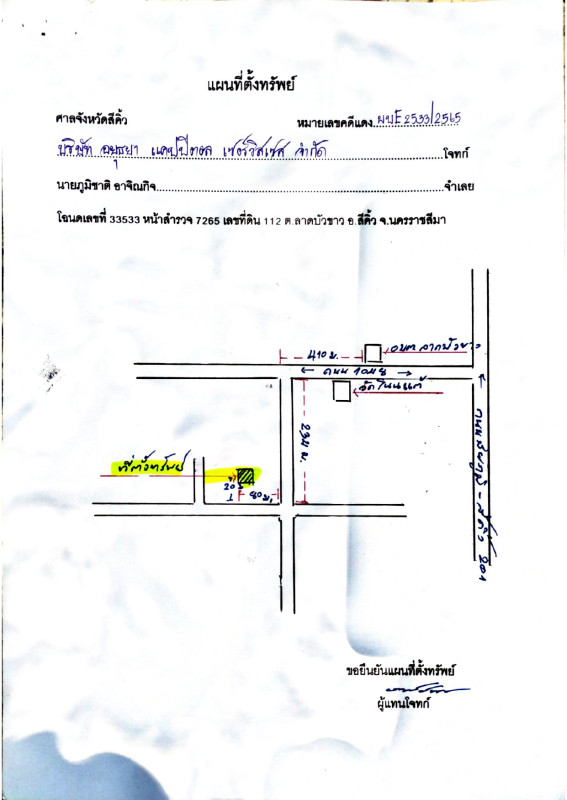 แผนที่ตั้งทรัพย์
ศาลจังหวัดสีคิ้ว หมายเลขคดีแดง ผบE2533/2565
บริษัท อยุธยา แคปปิตอล เซอร์วิสเซส จำกัด โจทก์
นายภูมิชาติ อาจิณกิจ จำเลย
โฉนดเลขที่ 33533 หน้าสำรวจ 7265 เลขที่ดิน 112 ต.ลาดบัวขาว อ.สีคิ้ว จ.นครราชสีมา
410 ม.
อบต ลาดบัวขาว
ถนน
วัดโนนแต้
234 ม.
ที่ตั้งทรัพย์
20 ม
80 ม.
ถนนชัยภูมิ - สีคิ้ว 201
ขอยืนยันแผนที่ตั้งทรัพย์
ผู้แทนโจทก์